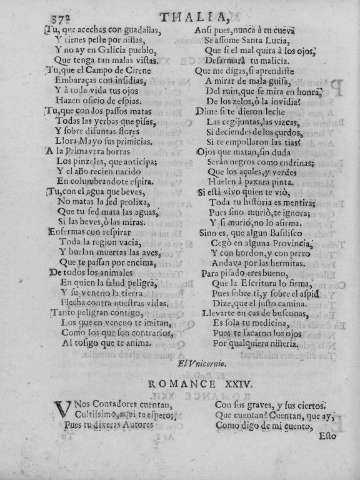 378 THALIA,
Tu, que acechas con guadañas,
Y tienes peste por niñas,
Y no ay en Galicia pueblo,
Que tenga tan malas vistas.
Tu, que el Campo de Cirene
Embaraças con insidias,
Y à toda vida tus ojos
Hazen oficio de espias.
Tu, que con dos passos matas
Todas las yerbas que pisas,
Y sobre difuntas flores
Llora Mayo sus primicias.
A la Primavera borras
Los pinzeles, que anticipa;
Y el año recien nacido
En columbrandote espira.
Tu, con el agua que beves,
No matas la sed prolixa,
Que tu sed mata las aguas,
Si las beves, ò las miras.
Enfermas con respirar
Toda la region vacia,
Y burlan muertas las aves,
Que te passan por encima,
De todos los animales
En quien la salud peligra,
Y su veneno la tierra
Flecha contra nuestras vidas.
Tanto peligran contigo,
Los que en veneno te imitan,
Como los que son contrarios,
Al tosigo que te anima.
Ansi pues, nunca à tu cueva
Se assome Santa Lucia,
Que si el mal quita à los ojos,
Desarmarà tu malicia.
Que me digas, si aprendiste
A mirar de mala guisa,
Del ruin, que se mira en honra,
De los zelos, ò la invidia!
Dime si te dieron leche
Las cegijuntas, las viezcas,
Si deciendes de los zurdos,
Si te empollaron las tias!
Ojos que matan, sin duda
Seràn negros como endrinas;
Que los azules, y verdes
Huelen à paxara pinta.
Si està vivo quien te viò,
Toda tu historia es mentira;
Pues si no muriò, te ignora;
Y si muriò, no lo afirma.
Sino es, que algun Basilisco
Cegò en alguna Provincia,
Y con bordon, y con perro
Andava por las hermitas.
Para pisado eres bueno,
Que la Escritura lo firma,
Pues sobre ti, y sobre el aspid
Dize, que el justo camina.
Llevarte en cas de busconas,
Es sola tu medicina,
Pues te sacaràn los ojos
Por qualquiera niñeria.
El Vnicornio.
ROMANCE XXIV.
VNos Contadores cuentan,
Cultissimo, aqui te espero,
Pues tu diversas Autores
Con sus graves, y sus ciertos.
Que cuentan! Cuentan, que ay,
Como digo de mi cuento,
Esto